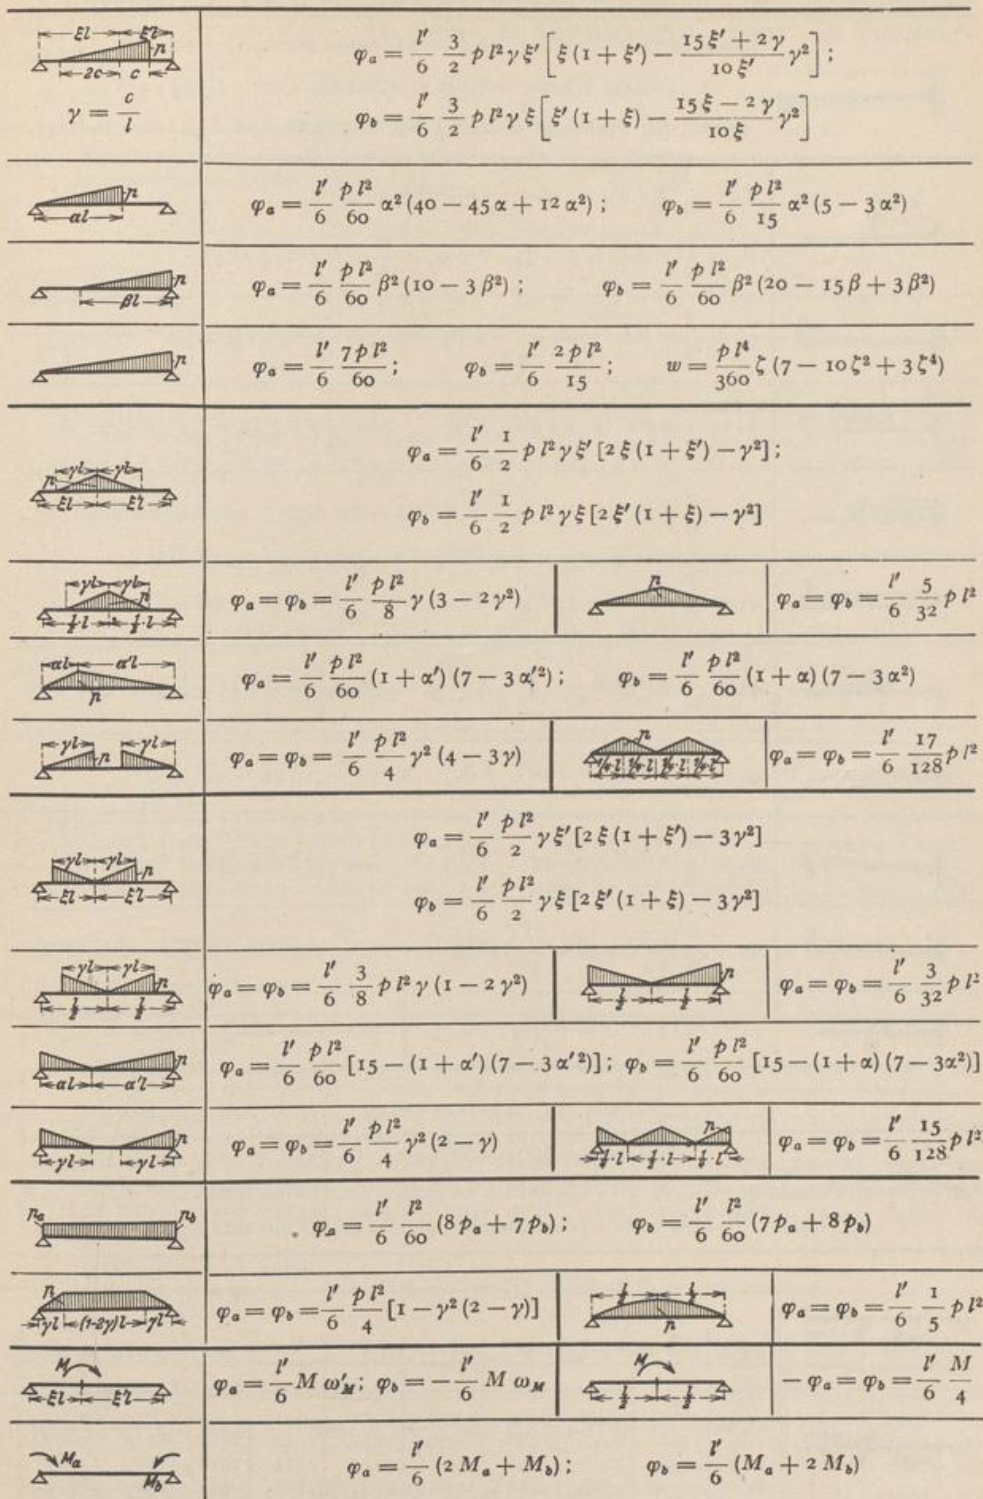 ξl ξ'l
p
2c c
γ = c/l
φₐ = l'/6 3/2 p l² γ ξ' [ξ (1 + ξ') − (15 ξ' + 2 γ)/(10 ξ') γ²] ;
φ_b = l'/6 3/2 p l² γ ξ [ξ' (1 + ξ) − (15 ξ − 2 γ)/(10 ξ) γ²]
p
αl
φₐ = l'/6 p l²/60 α² (40 − 45 α + 12 α²) ; φ_b = l'/6 p l²/15 α² (5 − 3 α²)
p
βl
φₐ = l'/6 p l²/60 β² (10 − 3 β²) ; φ_b = l'/6 p l²/60 β² (20 − 15 β + 3 β²)
p
φₐ = l'/6 7 p l²/60 ; φ_b = l'/6 2 p l²/15 ; w = p l⁴/360 ζ (7 − 10 ζ² + 3 ζ⁴)
γl γl
p
ξl ξ'l
φₐ = l'/6 1/2 p l² γ ξ' [2 ξ (1 + ξ') − γ²] ;
φ_b = l'/6 1/2 p l² γ ξ [2 ξ' (1 + ξ) − γ²]
γl γl
p
½·l ½·l
φₐ = φ_b = l'/6 p l²/8 γ (3 − 2 γ²)
p
φₐ = φ_b = l'/6 5/32 p l²
αl α'l
p
φₐ = l'/6 p l²/60 (1 + α') (7 − 3 α'²) ; φ_b = l'/6 p l²/60 (1 + α) (7 − 3 α²)
γl γl
p
φₐ = φ_b = l'/6 p l²/4 γ² (4 − 3 γ)
p
¼·l ¼·l ¼·l ¼·l
φₐ = φ_b = l'/6 17/128 p l²
γl γl
p
ξl ξ'l
φₐ = l'/6 p l²/2 γ ξ' [2 ξ (1 + ξ') − 3 γ²]
φ_b = l'/6 p l²/2 γ ξ [2 ξ' (1 + ξ) − 3 γ²]
γl γl
p
l/2 l/2
φₐ = φ_b = l'/6 3/8 p l² γ (1 − 2 γ²)
p
l/2 l/2
φₐ = φ_b = l'/6 3/32 p l²
p
αl α'l
φₐ = l'/6 p l²/60 [15 − (1 + α') (7 − 3 α'²)] ; φ_b = l'/6 p l²/60 [15 − (1 + α) (7 − 3α²)]
p
γl γl
φₐ = φ_b = l'/6 p l²/4 γ² (2 − γ)
p
¼·l ½·l ¼·l
φₐ = φ_b = l'/6 15/128 p l²
pₐ p_b
φₐ = l'/6 l²/60 (8 pₐ + 7 p_b) ; φ_b = l'/6 l²/60 (7 pₐ + 8 p_b)
p
γl (1-2γ)l γl
φₐ = φ_b = l'/6 p l²/4 [1 − γ² (2 − γ)]
l/2 l/2
p
φₐ = φ_b = l'/6 1/5 p l²
M
ξl ξ'l
φₐ = l'/6 M ω'_M ; φ_b = − l'/6 M ω_M
M
l/2 l/2
− φₐ = φ_b = l'/6 M/4
Mₐ
M_b
φₐ = l'/6 (2 Mₐ + M_b) ; φ_b = l'/6 (Mₐ + 2 M_b)